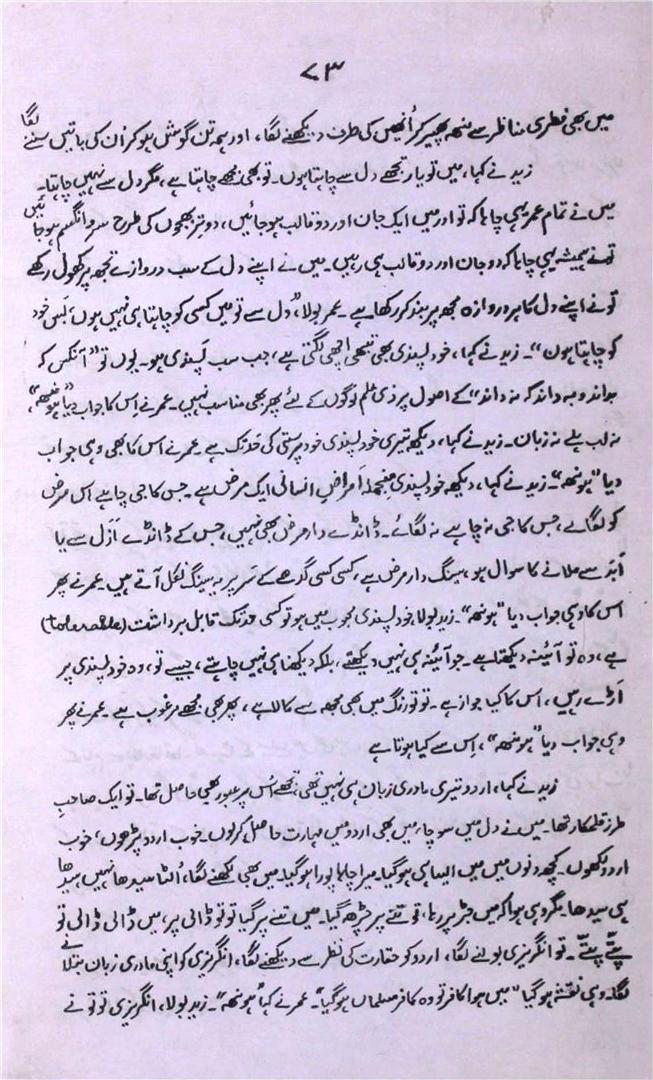 ۷۳
میں بھی فطری مناظر سے منھ پھیر کر اُنھیں کی طرف دیکھنے لگا، اور ہمہ تن گوش ہو کر اُن کی باتیں سننے لگا
زید نے کہا، میں تو یار تجھے دل سے چاہتا ہوں۔ تو بھی مجھے چاہتا ہے، مگر دل سے نہیں چاہتا۔
میں نے تمام عمر یہی چاہا کہ تو اور میں ایک جان اور دو قالب ہو جائیں، دو بتر بھجوں کی طرح سروانگسم ہو جائیں
تونے ہمیشہ یہی چاہا کہ دو جان اور دو قالب ہی رہیں۔ میں نے اپنے دل کے سب دروازے تجھ پر کھول رکھے
تونے اپنے دل کا ہر دروازہ مجھ پر بند کر رکھا ہے۔ عمر بولا، "دل سے تو میں کسی کو چاہتا ہی نہیں ہوں، بس خود
کو چاہتا ہوں"۔ زید نے کہا، خود پسندی بھی تبھی اچھی لگتی ہے، جب سب پسندی ہو۔ یوں تو "آنکس کہ
بداند و بداند کہ نہ داند" کے اصول پر ذی علم لوگوں کے لئے پھر بھی مناسب نہیں۔ عمر نے اِس کا جواب دیا "ہونھہ"،
نہ لب ہلے نہ زبان۔ زید نے کہا، دیکھ تیری خود پسندی خود پرستی کی حد تک ہے۔ عمر نے اس کا بھی وہی جواب
دیا "ہونھہ"۔ زید نے کہا، دیکھ خود پسندی منجملہ اَمراضِ انسانی ایک مرض ہے۔ جس کا جی چاہے اس مرض
کو لگائے، جس کا جی نہ چاہے نہ لگائے۔ ڈانڈے دار مرض بھی نہیں، جس کے ڈانڈے اَزل سے یا
اَبَد سے ملانے کا سوال ہو، سینگ دار مرض ہے، کسی کسی گدھے کے سَر پر یہ سینگ نکل آتے ہیں۔ عمر نے پھر
اس کا وہی جواب دیا "ہونھہ"۔ زید بولا خود پسندی محبوب میں ہو تو کسی حد تک قابلِ برداشت (tolerable)
ہے، وہ تو آئینہ دیکھتا ہے۔ جو آئینہ ہی نہیں دیکھتے، بلکہ دیکھنا ہی نہیں چاہتے، جیسے تو، وہ خود پسندی پر
اَڑے رہیں، اس کا کیا جواز ہے۔ تو تو رنگ میں بھی مجھ سے کالا ہے، پھر بھی مجھے مرغوب ہے۔ عمر نے پھر
وہی جواب دیا "ہونھہ"، اِس سے کیا ہوتا ہے
زید نے کہا، اردو تیری مادری زبان ہی نہیں تھی، تجھے اُس پر عبور بھی حاصل تھا۔ تو ایک صاحبِ
طرز قلمکار تھا۔ میں نے دل میں سوچا، میں بھی اردو میں مہارت حاصل کر لوں۔ خوب اردو پڑھوں، خوب
اردو لکھوں۔ کچھ دنوں میں میں ایسا ہی ہو گیا۔ میرا چاہا پورا ہو گیا۔ میں بھی لکھنے لگا، اُلٹا سیدھا نہیں سیدھا
ہی سیدھا۔ مگر وہی ہوا کہ میں جڑ پر رہا، تو تنے پر چڑھ گیا۔ میں تنے پر گیا تو تو ڈالی پر، میں ڈالی ڈالی تو
پتّے پتّے۔ تو انگریزی بولنے لگا، اردو کو حقارت کی نظر سے دیکھنے لگا، انگریزی کو اپنی مادری زبان بتلانے
لگا۔ وہی نقشہ ہو گیا "میں ہوا کافر تو وہ کافر مسلماں ہو گیا"۔ عمر نے کہا "ہونھہ"۔ زید بولا، انگریزی تو تو نے